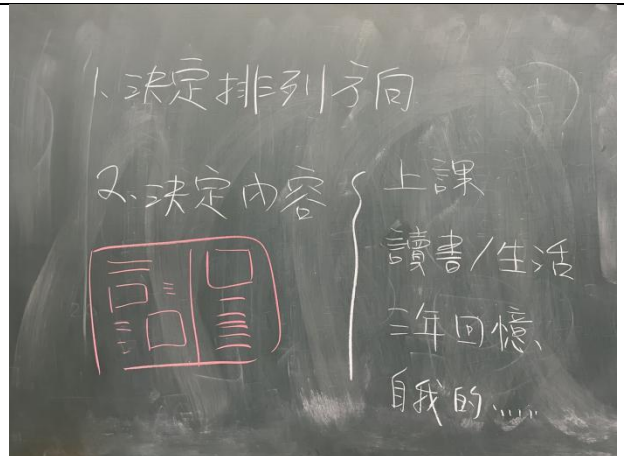 1、決定排列方向
2、決定內容
上課
讀書/生活
三年回憶、
自我的……